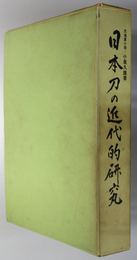 日本刀の近代的研究